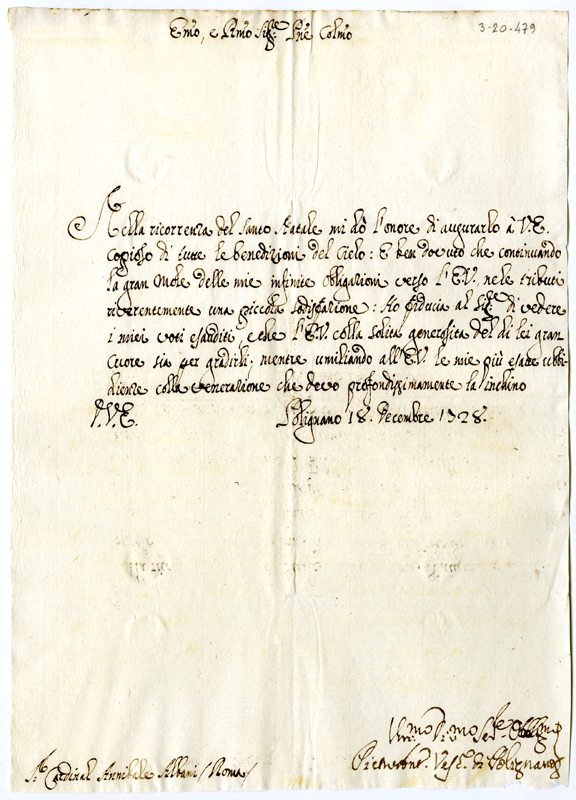 Emo, e Rmo Sigre Pne Colmo
3-20-479
Nella ricorrenza del Santo Natale mi dò l'onore di augurarlo à V.E.
copioso di tutte le benedizioni del Cielo: E ben dovuto che continuando
la gran mole delle mie infinite obligazioni verso l'E.V. ne le tributi
riverentemente una piccola sodisfazione: Ho fiducia al Sige di vedere
i miei voti esauditi, e che l'E.V. colla solita generosità del di lei gran
Cuore sia per gradirli; mentre umiliando all'E.V. le mie più esatte ubbi-
dienze colla venerazione che devo profondissimamente la inchino
D.V.E. Polignano 18. Decembre 1728.
Umo Divmo Sere Obbligmo
Pietro Ant. Vesc. di Polignano
Sr Cardinal Annibale Albani / Roma /